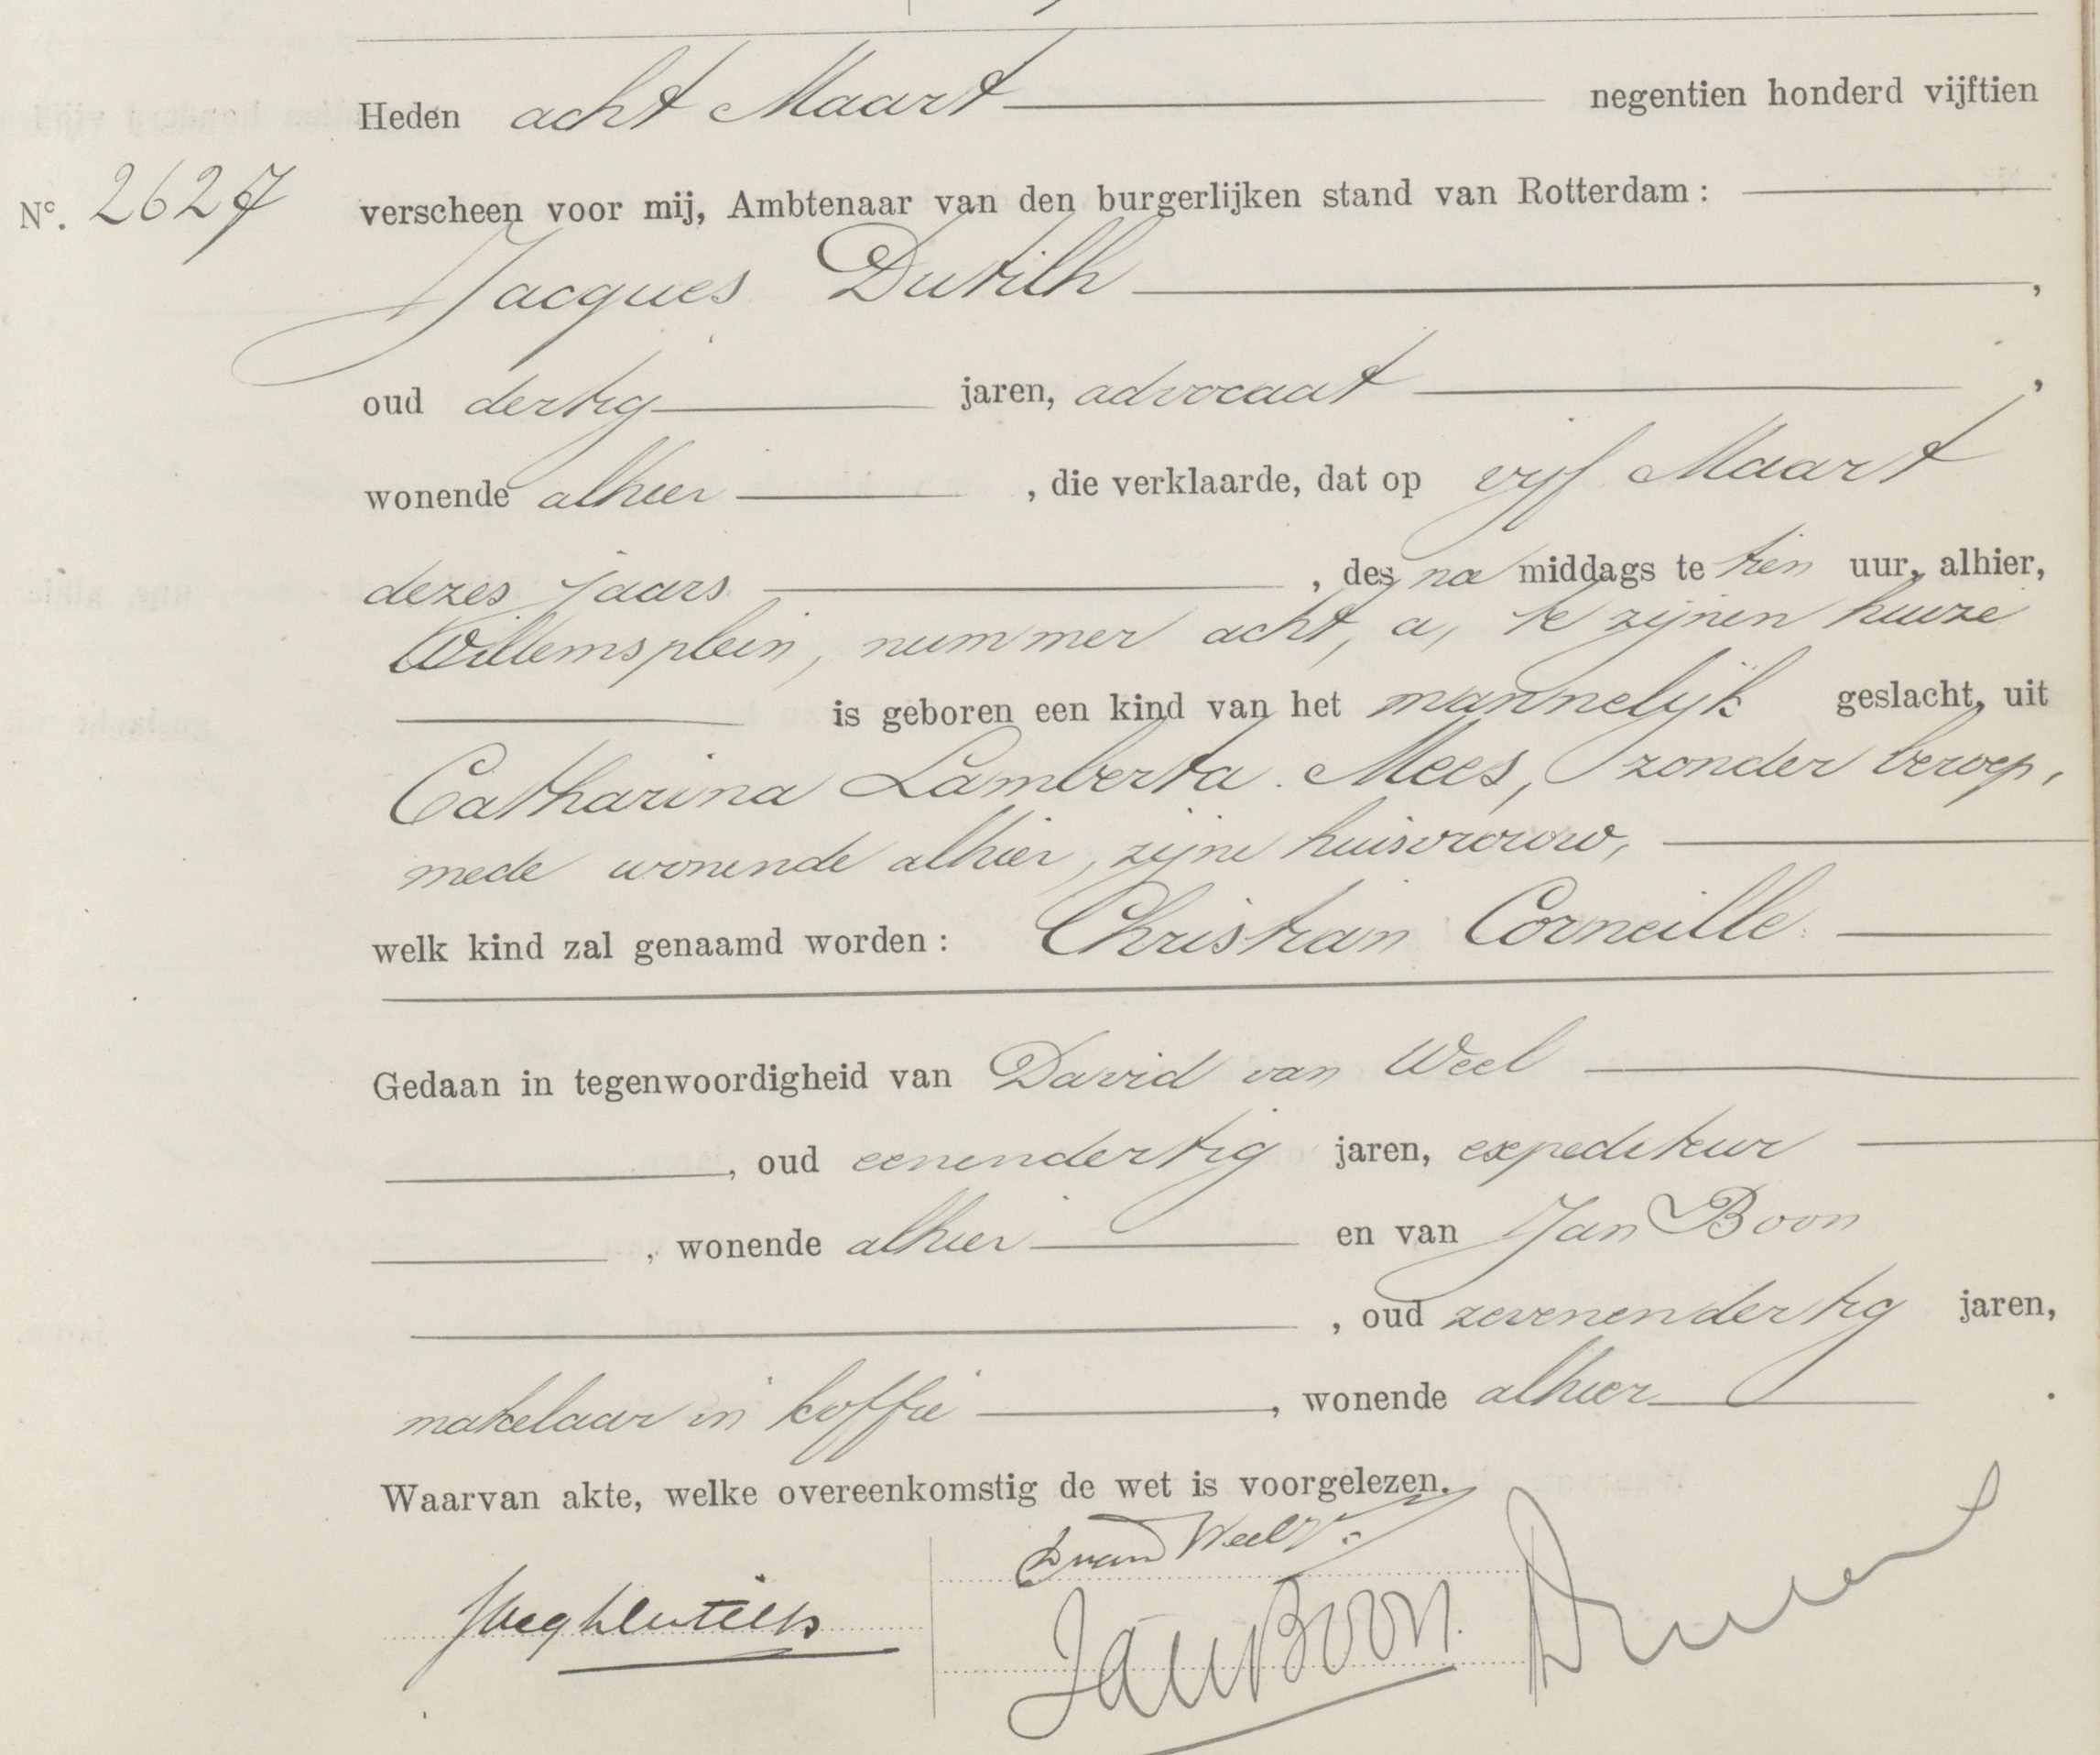 Heden acht Maart negentien honderd vijftien
No. 2627 verscheen voor mij, Ambtenaar van den burgerlijken stand van Rotterdam:
Jacques Dutilh,
oud dertig jaren, advocaat,
wonende alhier, die verklaarde, dat op vijf Maart
dezes jaars, des na middags te tien uur, alhier,
Willemsplein, nummer acht, a, te zijnen huize
is geboren een kind van het mannelijk geslacht, uit
Catharina Lamberta Mees, zonder beroep,
mede wonende alhier, zijne huisvrouw,
welk kind zal genaamd worden: Christian Corneille
Gedaan in tegenwoordigheid van David van Weel
, oud eenendertig jaren, expediteur
, wonende alhier en van Jan Boon
, oud zevenendertig jaren,
makelaar in koffie, wonende alhier.
Waarvan akte, welke overeenkomstig de wet is voorgelezen.
D van Weel
Jan Boon